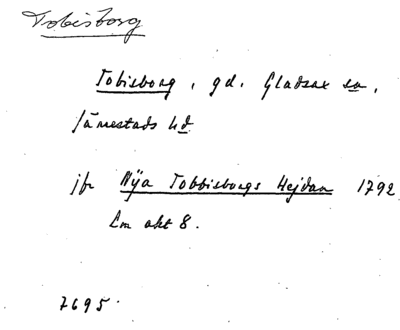 Tobisborg
Tobisborg, gd. Gladsax sn,
Järrestads hd.
jfr Nÿa Tobbisborgs Hejdan 1792
Lm akt 8.
7695.